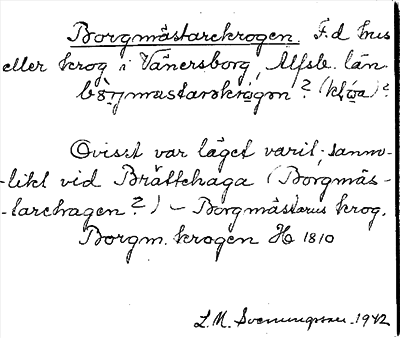 Borgmästarekrogen. F.d hus
eller krog i Vänersborg, Älfsb. län.
Ovisst var läget varit; sanno-
-likt vid Brättehaga (Borgmäs-
-tarehagen?) – Borgmästarens krog.
Borgm. krogen H 1810
L. M. Svenungsson 1942